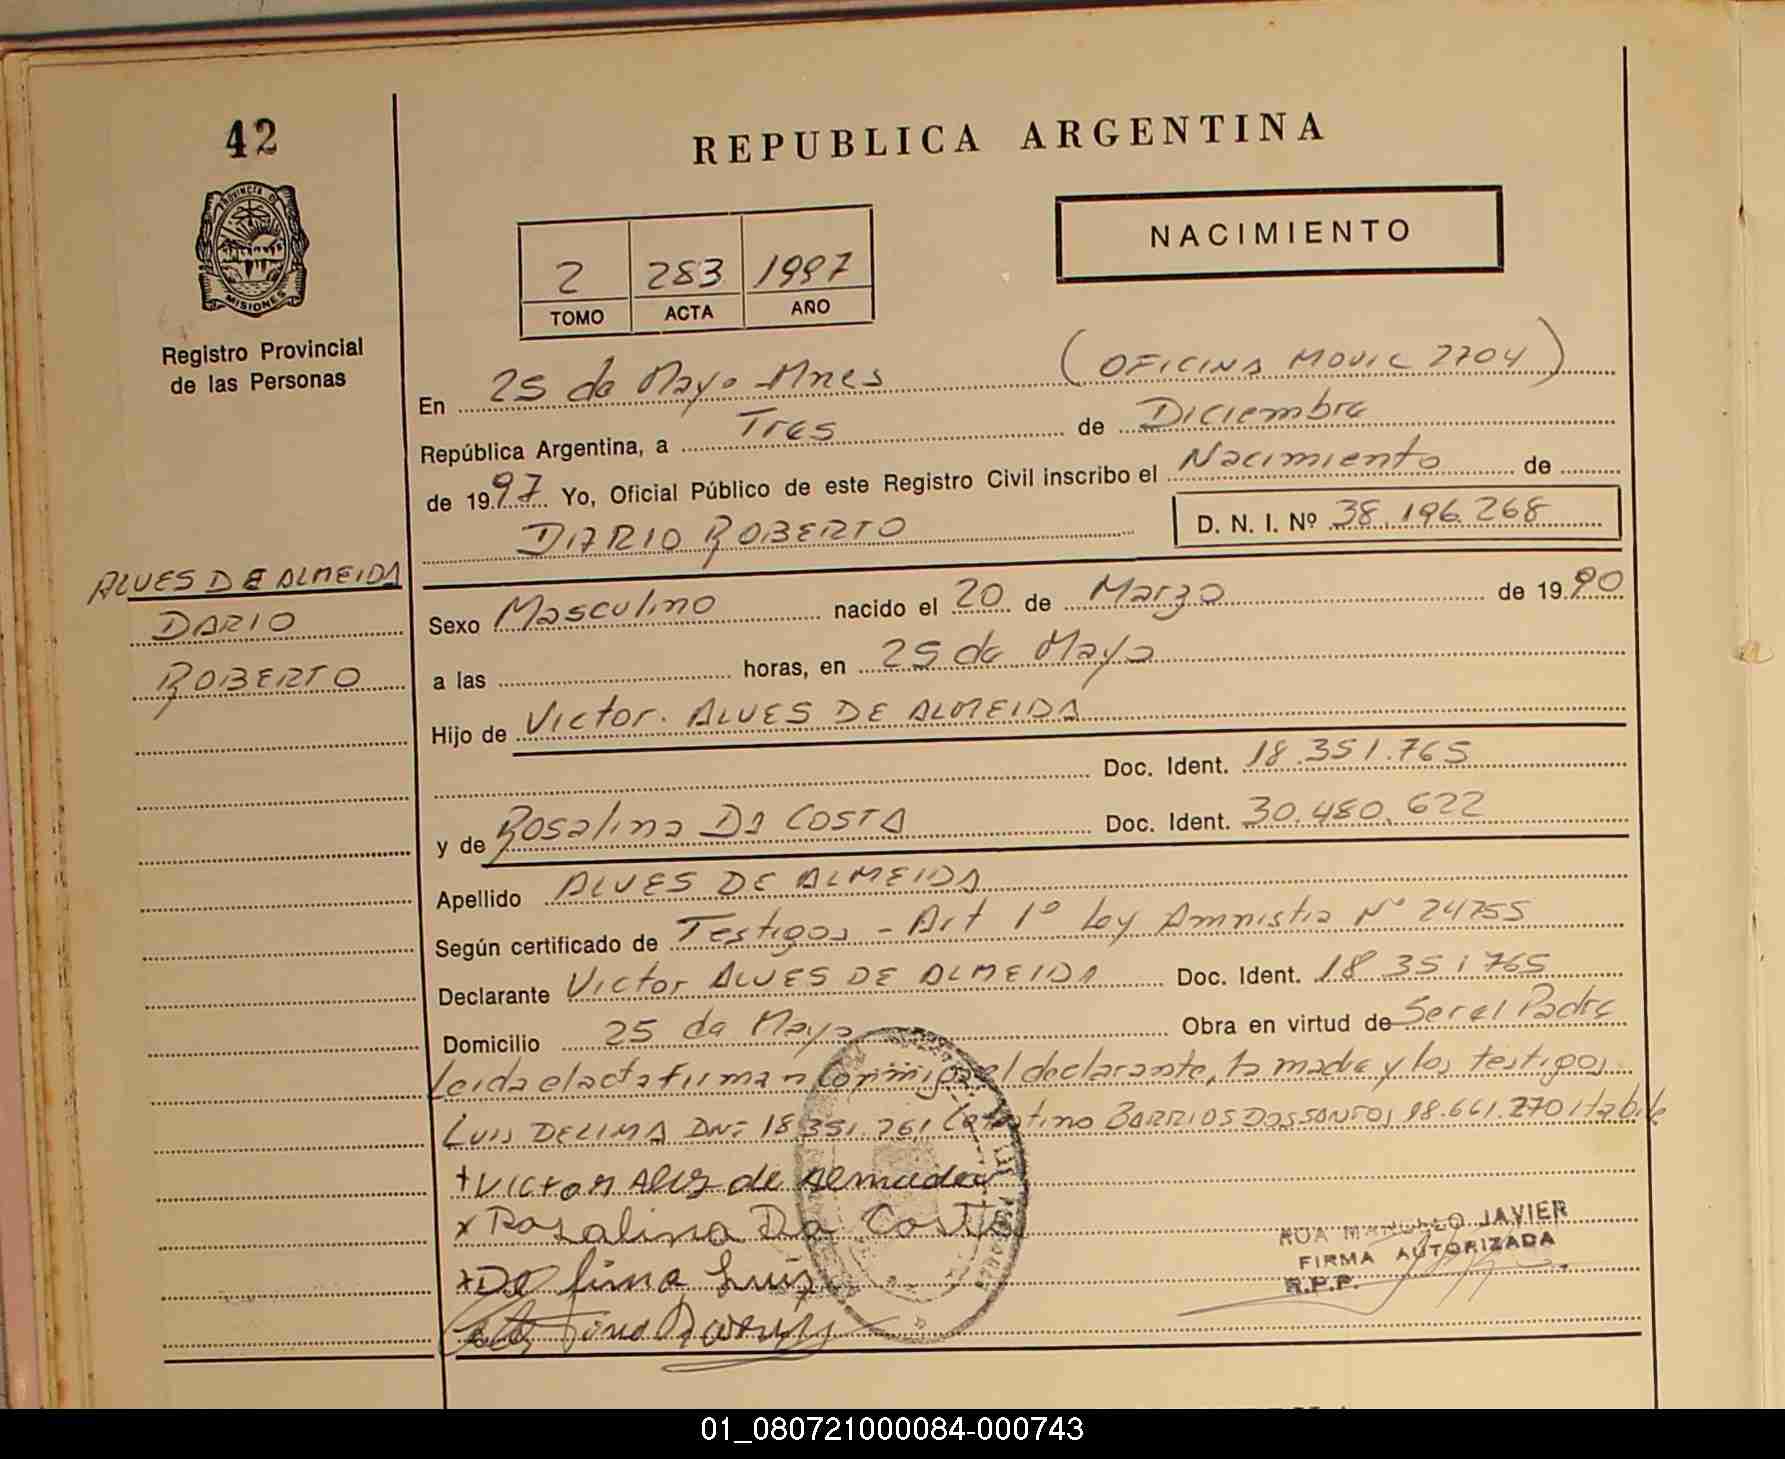 42
REPUBLICA ARGENTINA
PROVINCIA DE
MISIONES
NACIMIENTO
2 283 1997
TOMO ACTA AÑO
Registro Provincial
de las Personas
En 25 de Mayo Mnes (OFICINA MOVIL 2704)
República Argentina, a Tres de Diciembre
de 1997 Yo, Oficial Público de este Registro Civil inscribo el Nacimiento de
DARIO ROBERTO D. N. I. Nº 38.196.268
ALVES DE ALMEIDA
DARIO
ROBERTO
Sexo Masculino nacido el 20 de Marzo de 1990
a las horas, en 25 de Mayo
Hijo de Victor. ALVES DE ALMEIDA
Doc. Ident. 18.351.765
y de Rosalina Da COSTA Doc. Ident. 30.480.622
Apellido ALVES DE ALMEIDA
Según certificado de Testigos - Art 1º Ley Amnistia Nº 24755
Declarante Victor ALVES DE ALMEIDA Doc. Ident. 18 351 765
Domicilio 25 de Mayo Obra en virtud de Ser el Padre
Leida el acta firman conmigo el declarante, la madre y los testigos
LUIS DELIMA DNI 18.351.761 BARRIOS DOSSANTOS 18.661.270
+Victor de
x Rosalina Da Costa
x De lima Luis
RUA MARCELO JAVIER
FIRMA AUTORIZADA
R.P.P.
01_080721000084-000743